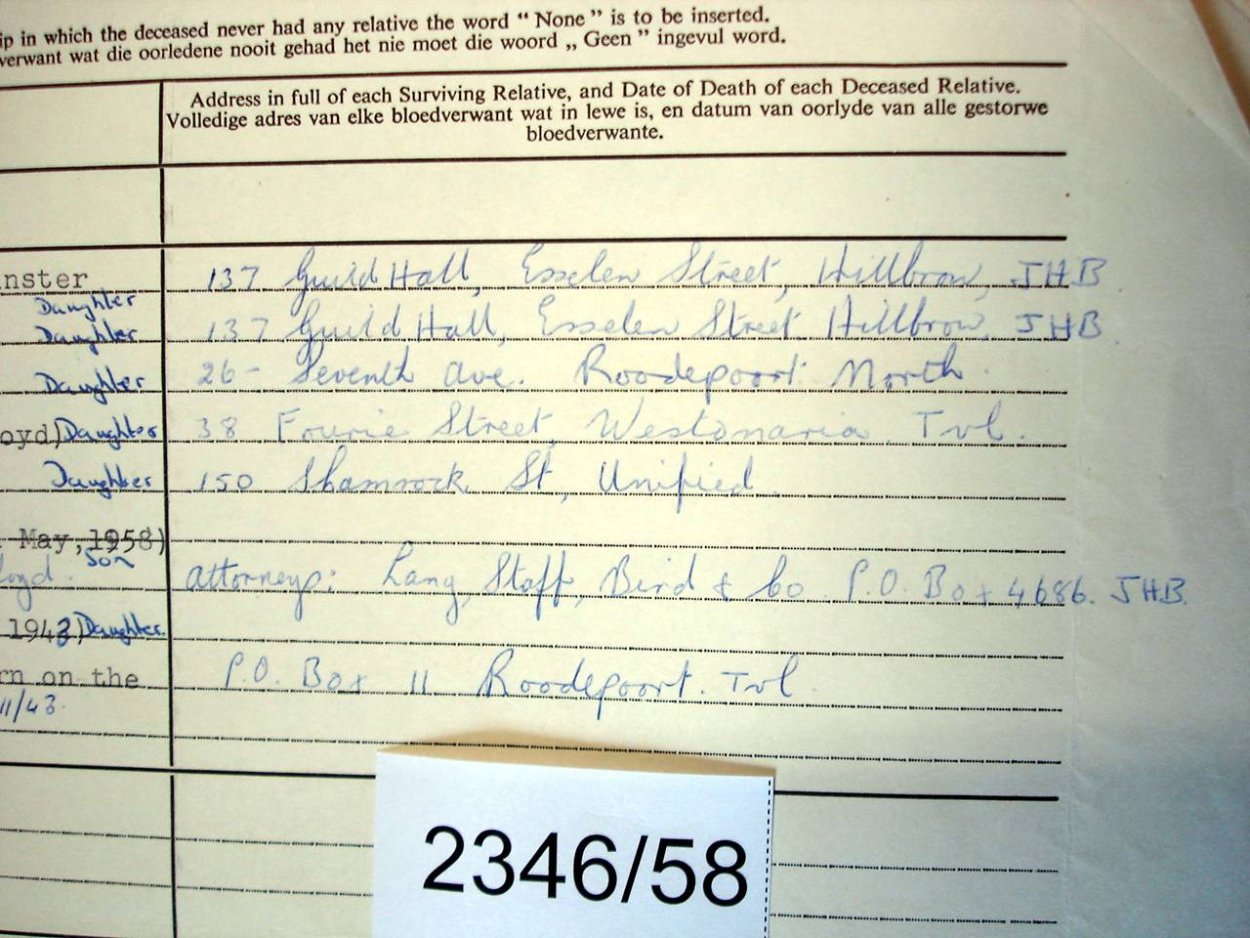 ip in which the deceased never had any relative the word “ None ” is to be inserted.
verwant wat die oorledene nooit gehad het nie moet die woord „ Geen ” ingevul word.
Address in full of each Surviving Relative, and Date of Death of each Deceased Relative.
Volledige adres van elke bloedverwant wat in lewe is, en datum van oorlyde van alle gestorwe
bloedverwante.
nster 137 Guild Hall, Esselen Street, Hillbrow, JHB
Daughter
Daughter 137 Guild Hall, Esselen Street Hillbrow, JHB
Daughter 26- Seventh Ave. Roodepoort North.
oyd) Daughter 38 Fourie Street, Westonaria. Tvl.
Daughter 150 Shamrock St, Unified
May, 1958)
loyd. son attorneys: Lang, Staff, Bird & Co. P.O. Box 4686. JHB.
1943) Daughter.
rn on the P.O. Box 11 Roodepoort. Tvl.
11/43.
2346/58